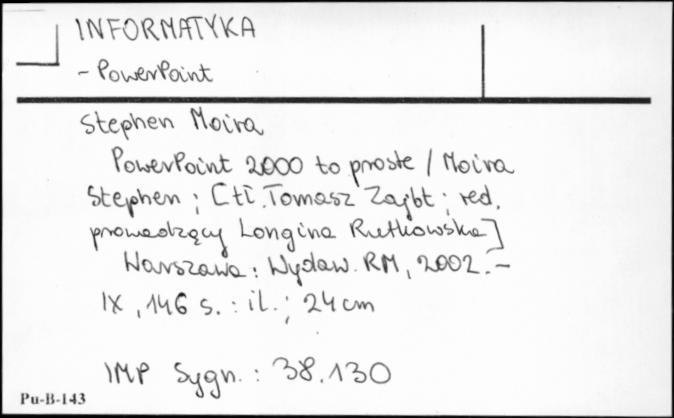 INFORMATYKA
- PowerPoint
Stephen Moira
PowerPoint 2000 to proste / Moira
Stephen ; [tł. Tomasz Zajbt ; red.
prowadzący Longina Rutkowska]
Warszawa : Wydaw. RM, 2002. -
IX, 146 s. : il. ; 24 cm
IMP Sygn. : 38.130
Pu-B-143